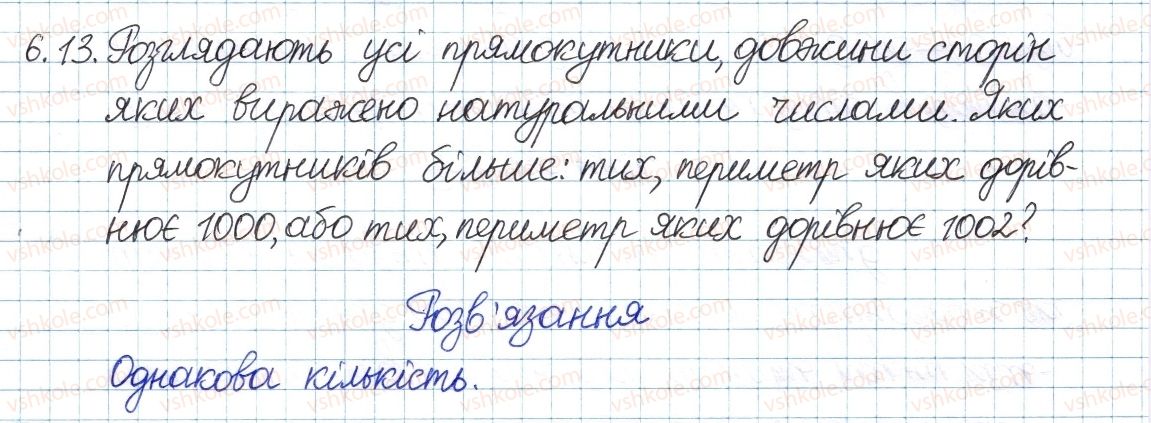 6.13. Розглядають усі прямокутники, довжини сторін
яких виражено натуральними числами. Яких
прямокутників більше: тих, периметр яких дорів-
нює 1000, або тих, периметр яких дорівнює 1002?
Розв'язання
Однакова кількість.